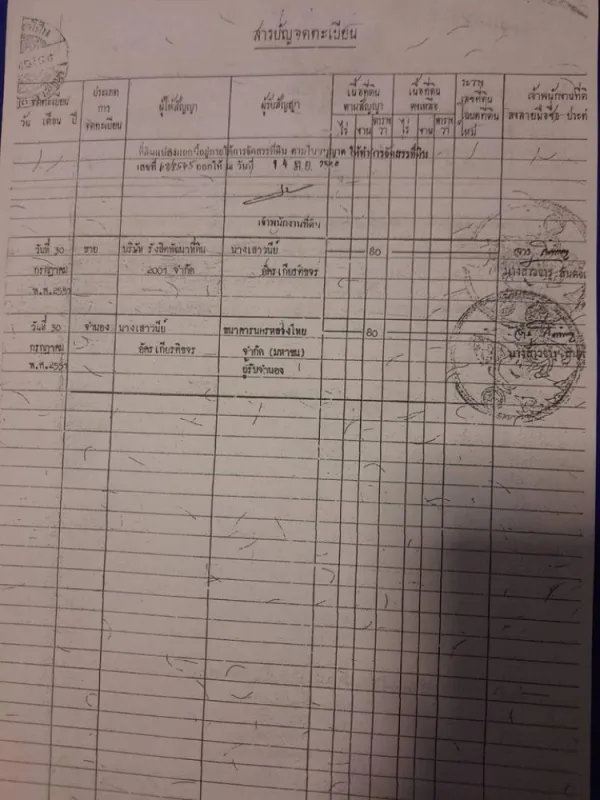 สารบัญจดทะเบียน
จดทะเบียน
วัน เดือน ปี
ประเภท
การ
จดทะเบียน
ผู้ให้สัญญา
ผู้รับสัญญา
เนื้อที่ดิน
ตามสัญญา
ไร่ งาน ตารางวา
เนื้อที่ดิน
คงเหลือ
ไร่ งาน ตารางวา
ระวาง
เลขที่ดิน
โฉนดที่ดิน
ใหม่
เจ้าพนักงานที่ดิน
ลงลายมือชื่อ ประทับ
ที่ดินแปลงแยกนี้อยู่ภายใต้การจัดสรรที่ดิน ตามใบอนุญาต ให้ทำการจัดสรรที่ดิน
เลขที่ ออกให้ ณ วันที่ 14
เจ้าพนักงานที่ดิน
วันที่ 30 ขาย บริษัท รังสิตพัฒนาที่ดิน นางเสาวนีย์ 80
กรกฎาคม 2001 จำกัด อัครเกียรติขจร
พ.ศ.2551
วันที่ 30 จำนอง นางเสาวนีย์ ธนาคารนครหลวงไทย 80
กรกฎาคม อัครเกียรติขจร จำกัด (มหาชน)
พ.ศ.2551 ผู้รับจำนอง